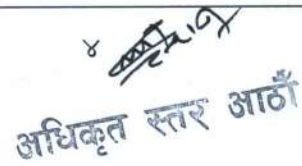 ४
अधिकृत स्तर आठौं